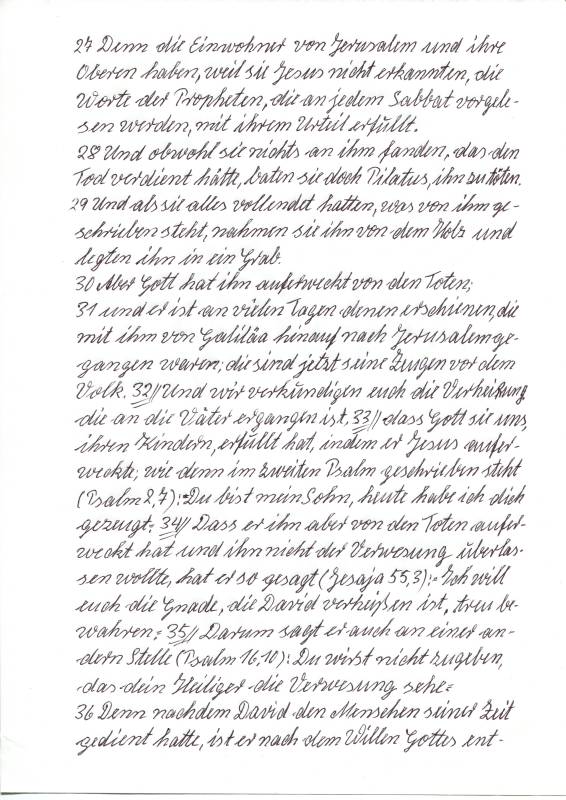 27 Denn die Einwohner von Jerusalem und ihre
Oberen haben, weil sie Jesus nicht erkannten, die
Worte der Propheten, die an jedem Sabbat vorgele-
sen werden, mit ihrem Urteil erfüllt.
28 Und obwohl sie nichts an ihm fanden, das den
Tod verdient hätte, baten sie doch Pilatus, ihn zu töten.
29 Und als sie alles vollendet hatten, was von ihm ge-
schrieben steht, nahmen sie ihn von dem Holz und
legten ihn in ein Grab.
30 Aber Gott hat ihn auferweckt von den Toten;
31 und er ist an vielen Tagen denen erschienen, die
mit ihm von Galiläa hinauf nach Jerusalem ge-
gangen waren; die sind jetzt seine Zeugen vor dem
Volk. 32// Und wir verkündigen euch die Verheißung
die an die Väter ergangen ist, 33// dass Gott sie uns,
ihren Kindern, erfüllt hat, indem er Jesus aufer-
weckte; wie denn im zweiten Psalm geschrieben steht
(Psalm 2,7): =Du bist mein Sohn, heute habe ich dich
gezeugt.= 34// Dass er ihn aber von den Toten aufer-
weckt hat und ihn nicht der Verwesung überlas-
sen wollte, hat er so gesagt (Jesaja 55,3): =Ich will
euch die Gnade, die David verheißen ist, treu be-
wahren.= 35// Darum sagt er auch an einer an-
dern Stelle (Psalm 16,10): Du wirst nicht zugeben,
das dein Heiliger die Verwesung sehe=
36 Denn nachdem David den Menschen seiner Zeit
gedient hatte, ist er nach dem Willen Gottes ent-